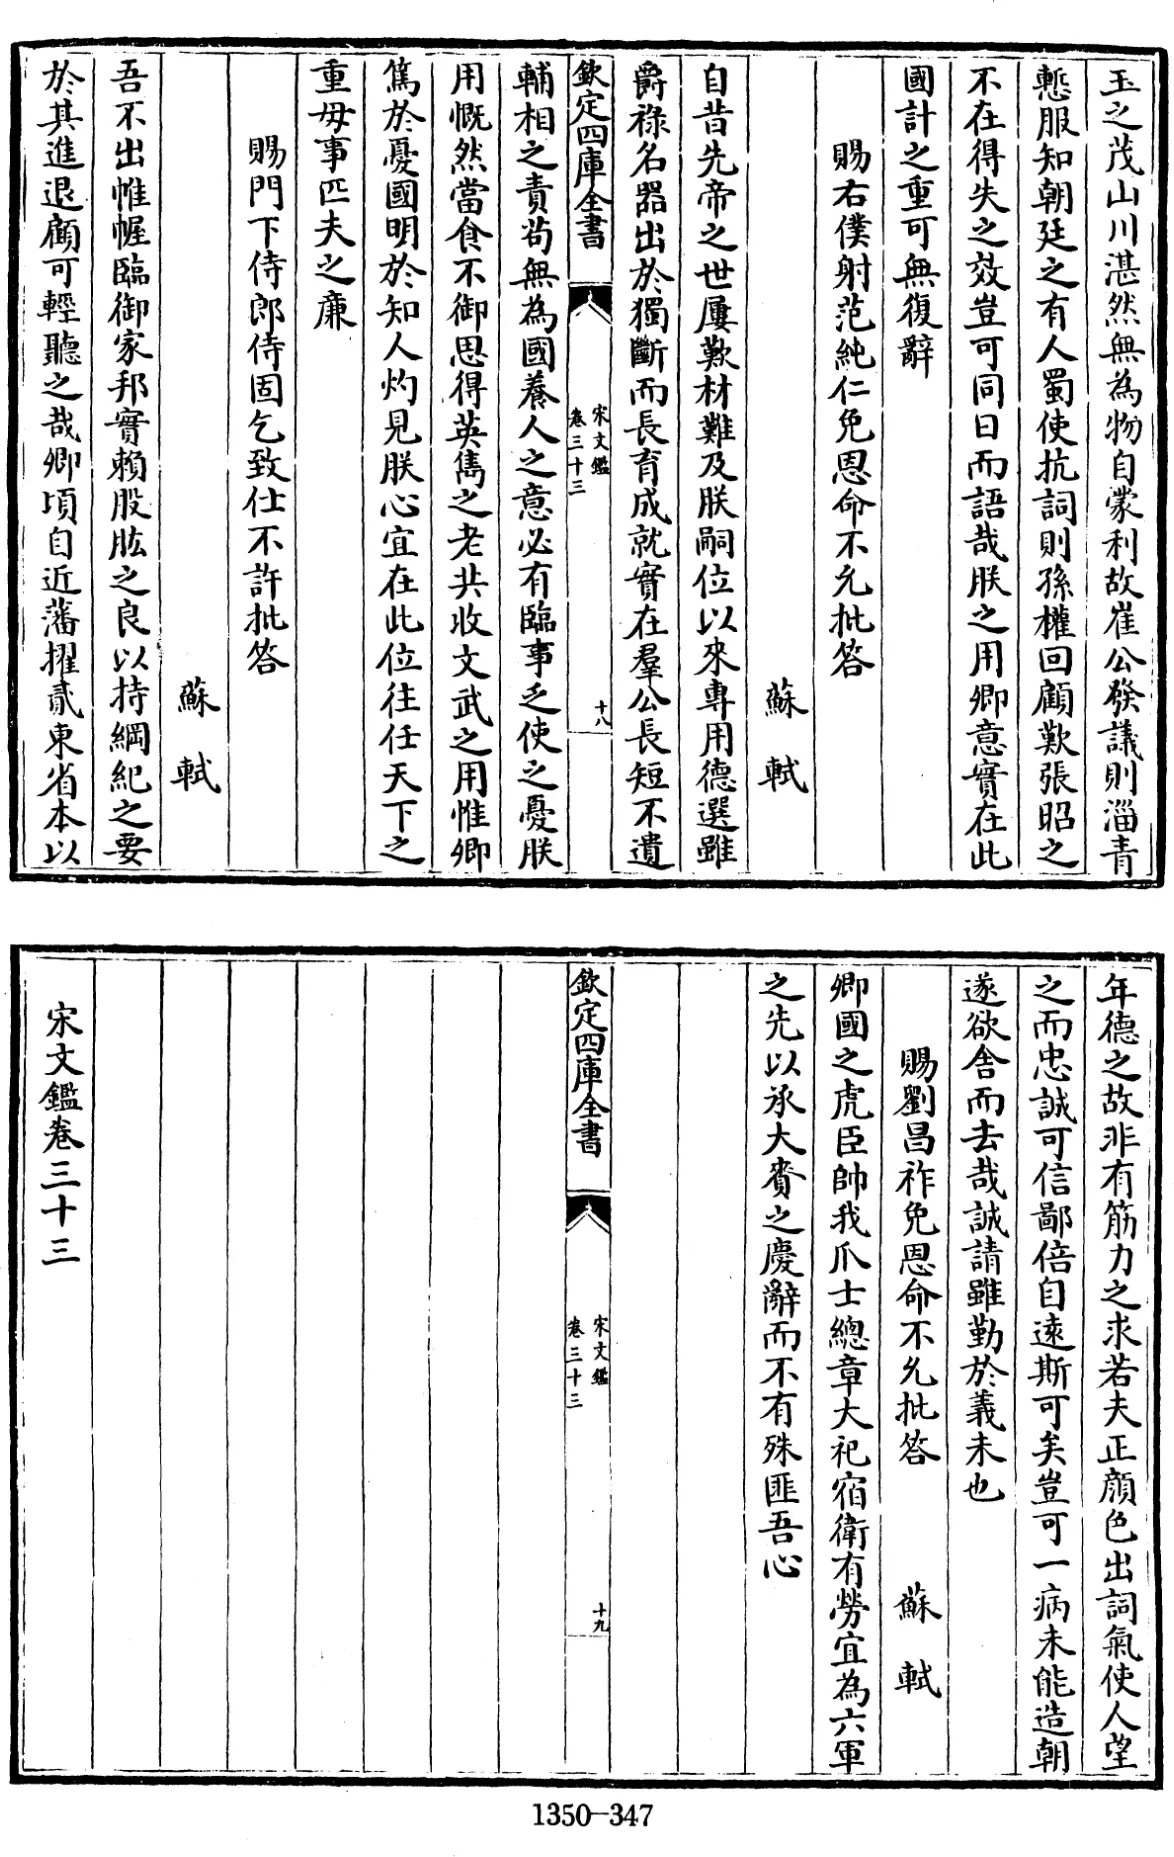 玉之茂山川湛然無為物自蒙利故崔公發議則淄青
慙服知朝廷之有人蜀使抗詞則孫權回顧歎張昭之
不在得失之效豈可同日而語哉朕之用卿意實在此
國計之重可無復辭
賜右僕射范純仁免恩命不允批答
蘇軾
自昔先帝之世屢歎材難及朕嗣位以來專用德選雖
爵祿名器出於獨斷而長育成就實在羣公長短不遺
欽定四庫全書
宋文鑑
卷三十三
十八
輔相之責茍無為國養人之意必有臨事乏使之憂朕
用慨然當食不御思得英雋之老共收文武之用惟卿
篤於憂國明於知人灼見朕心宜在此位往任天下之
重毋事匹夫之廉
賜門下侍郎侍固乞致仕不許批答
蘇軾
吾不出帷幄臨御家邦實賴股肱之良以持綱紀之要
於其進退顧可輕聽之哉卿頃自近藩擢貳東省本以
年德之故非有筋力之求若夫正顔色出詞氣使人望
之而忠誠可信鄙倍自遠斯可矣豈可一病未能造朝
遂欲舍而去哉誠請雖勤於義未也
賜劉昌祚免恩命不允批答
蘇軾
卿國之虎臣帥我爪士總章大祀宿衛有勞宜為六軍
之先以承大賚之慶辭而不有殊匪吾心
欽定四庫全書
宋文鑑
卷三十三
十九
宋文鑑卷三十三
1350-347